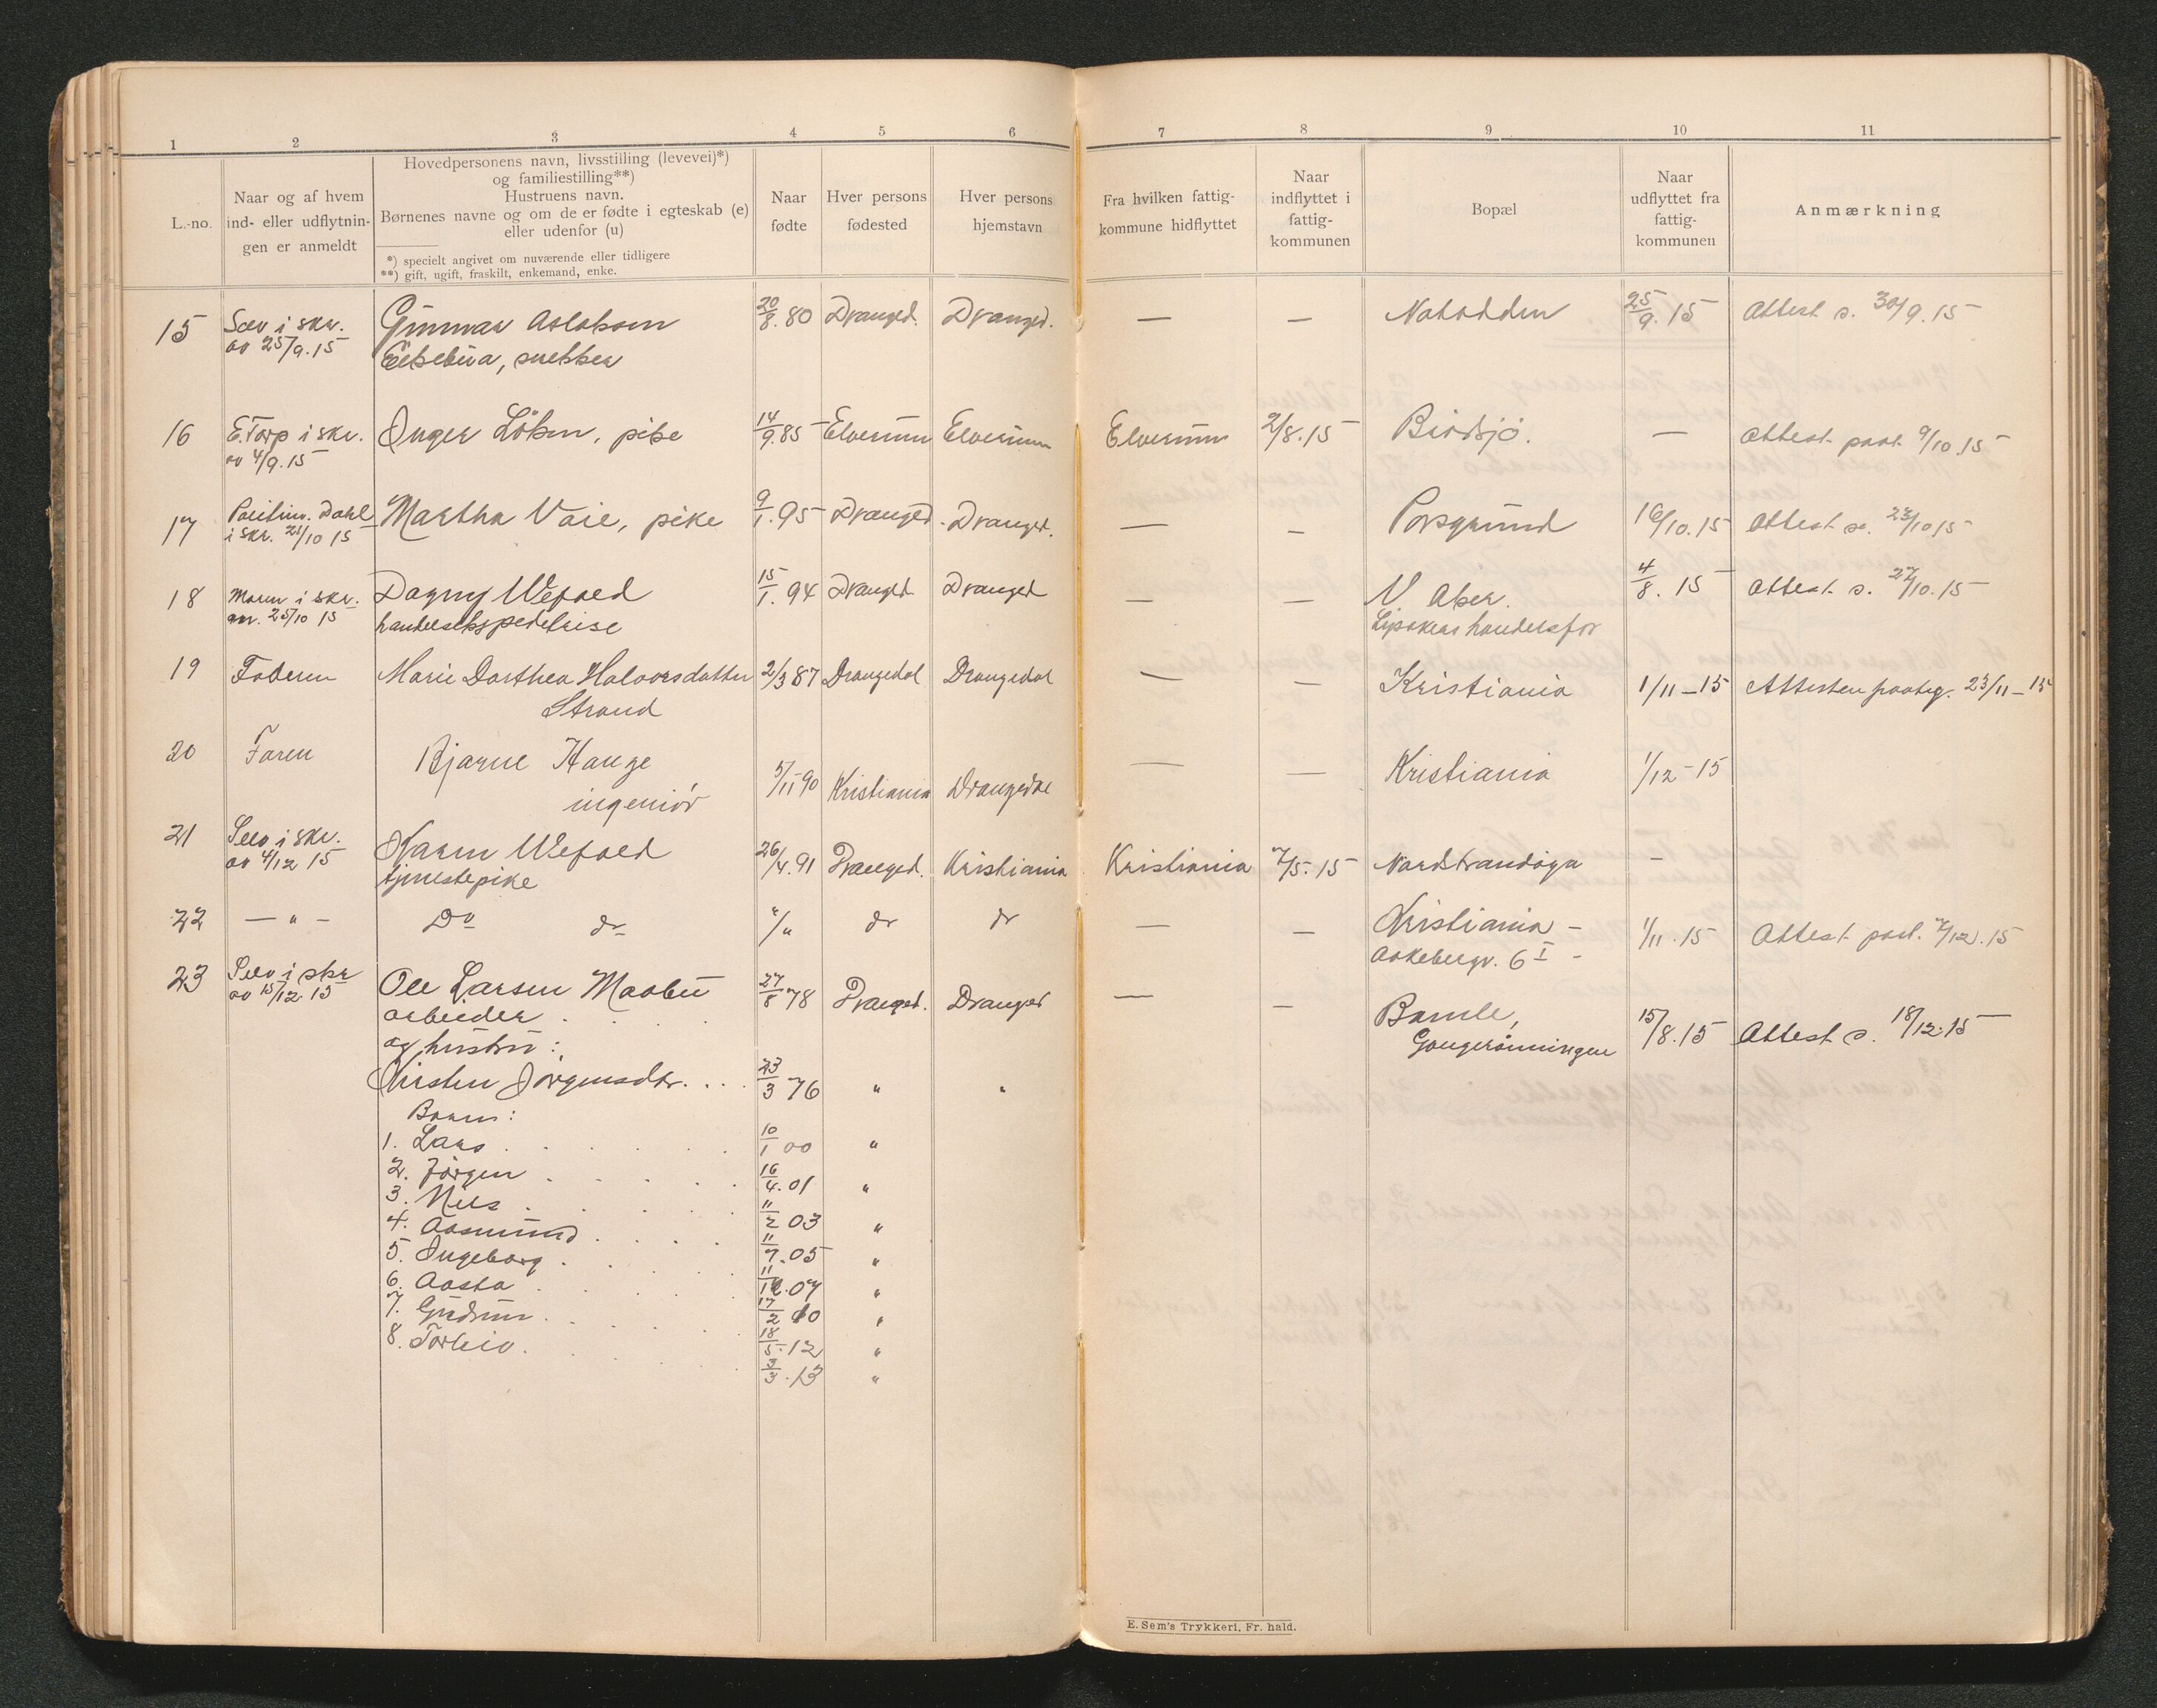 1 2 3 4 5 6 7 8 9 10 11
L.-no.
Naar og af hvem
ind- eller udflytnin-
gen er anmeldt
Hovedpersonens navn, livsstilling (levevei)*)
og familiestilling**)
Hustruens navn.
Børnenes navne og om de er fødte i egteskab (e)
eller udenfor (u)
*) specielt angivet om nuværende eller tidligere
**) gift, ugift, fraskilt, enkemand, enke.
Naar
fødte
Hver persons
fødested
Hver persons
hjemstavn
Fra hvilken fattig-
kommune hidflyttet
Naar
indflyttet i
fattig-
kommunen
Bopæl
Naar
udflyttet fra
fattig-
kommunen
Anmærkning
15 Selv i skr. Gunnar Aslaksen 20/8.80 Dranged. Dranged. — — Notodden 25/9.15 Attest s. 30/9.15
av 25/9.15 snekker
16 E. Torp i skr. Inger Löken, pike 14/9.85 Elverum Elverum Elverum 2/8.15 Bivdsjö. — Attest paat. 9/10.15
av 4/9.15
17 Dahl Martha Vaie, pike 9/1.95 Dranged. Dranged. — — Porsgrund 16/10.15 Attest s. 23/10 15
i skr. 21/10 15
18 Moren i skr. Dagny Wefald 15/1.94 Dranged Dranged — — V Aker. 4/8.15 Attest s. 27/10.15
25/10 15 handelsekspeditrise Lysakers handelsfor
19 Faderen Marie Dorthea Halvorsdatter 2/3 87 Drangedal Drangedal — — Kristiania 1/11-15 Attesten paateg. 23/11-15
Strand
20 Faren Bjarne Hauge 5/11 90 Kristiania Drangedal — — Kristiania 1/12-15
ingeniör
21 Selv i skr. Karen Wefald 26/4.91 Dranged. Kristiania Kristiania 7/5.15 Nordstrandöya -
av 4/12 15 tjenestepike
22 — " — Do do "/" do do — — Kristiania - 1/11.15 Attest paat. 7/12.15
Aakebergv. 6 I -
23 Selv i skr Ole Larsen Maabu 27/8 78 Dranged. Dranged — — Bamle, 15/8.15 Attest s. 18/12.15
av 15/12.15 arbeider . . . Gongerönningen
og hustru:
Kirsten Jörgensdtr. . . . 23/3 76 " "
Barn:
1. Lars . . . 10/1 00 "
2. Jörgen . . . 16/4.01 "
3. Nils . . . 11/2 03 "
4. Aasmund . . . 11/7.05 "
5. Ingeborg . . . 11/12.07 "
6. Aasta . . . 17/2 10 "
7. Gudrun . . . 18/5.12 "
8. Torleiv . . . 3/3.13 "
E. Sem's Trykkeri, Fr. hald.